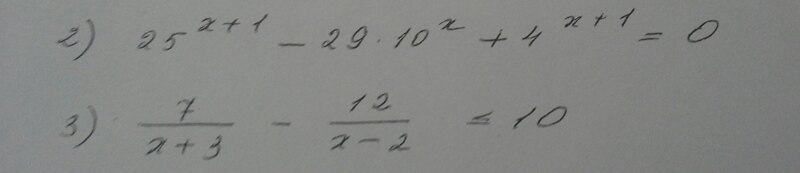 2) 25^{x+1} - 29·10^x + 4^{x+1} = 0
3) \frac{7}{x+3} - \frac{12}{x-2} ≤ 10